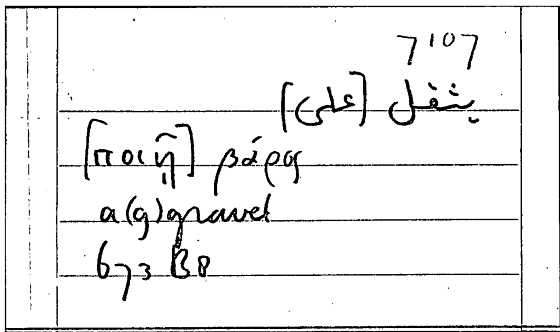 7107
يثقل [على]
[ποιῇ] βάρος
a(g)gravet
673 B8